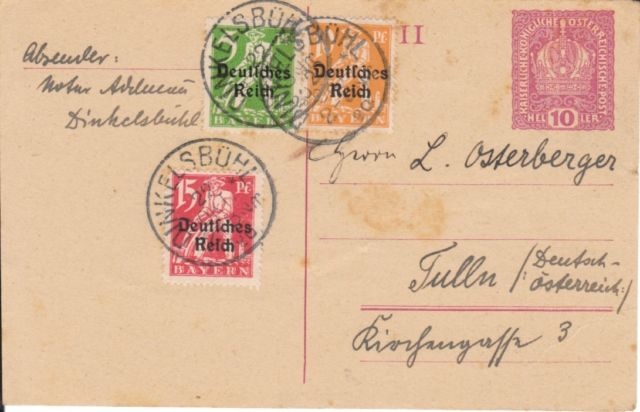 Absender:
Notar Adelmau
Dinkelsbühl
DINKELSBÜHL
5 Pf.
Deutsches
Reich
BAYERN
DINKELSBÜHL
10 Pf.
Deutsches
Reich
BAYERN
II
KAISERLICHE KÖNIGLICHE ÖSTERREICHISCHE POST
HELLER
10
DINKELSBÜHL
15 Pf.
Deutsches
Reich
BAYERN
Herrn L. Osterberger
Tulln /: Deutsch-
österreich :/
Kirchengasse 3